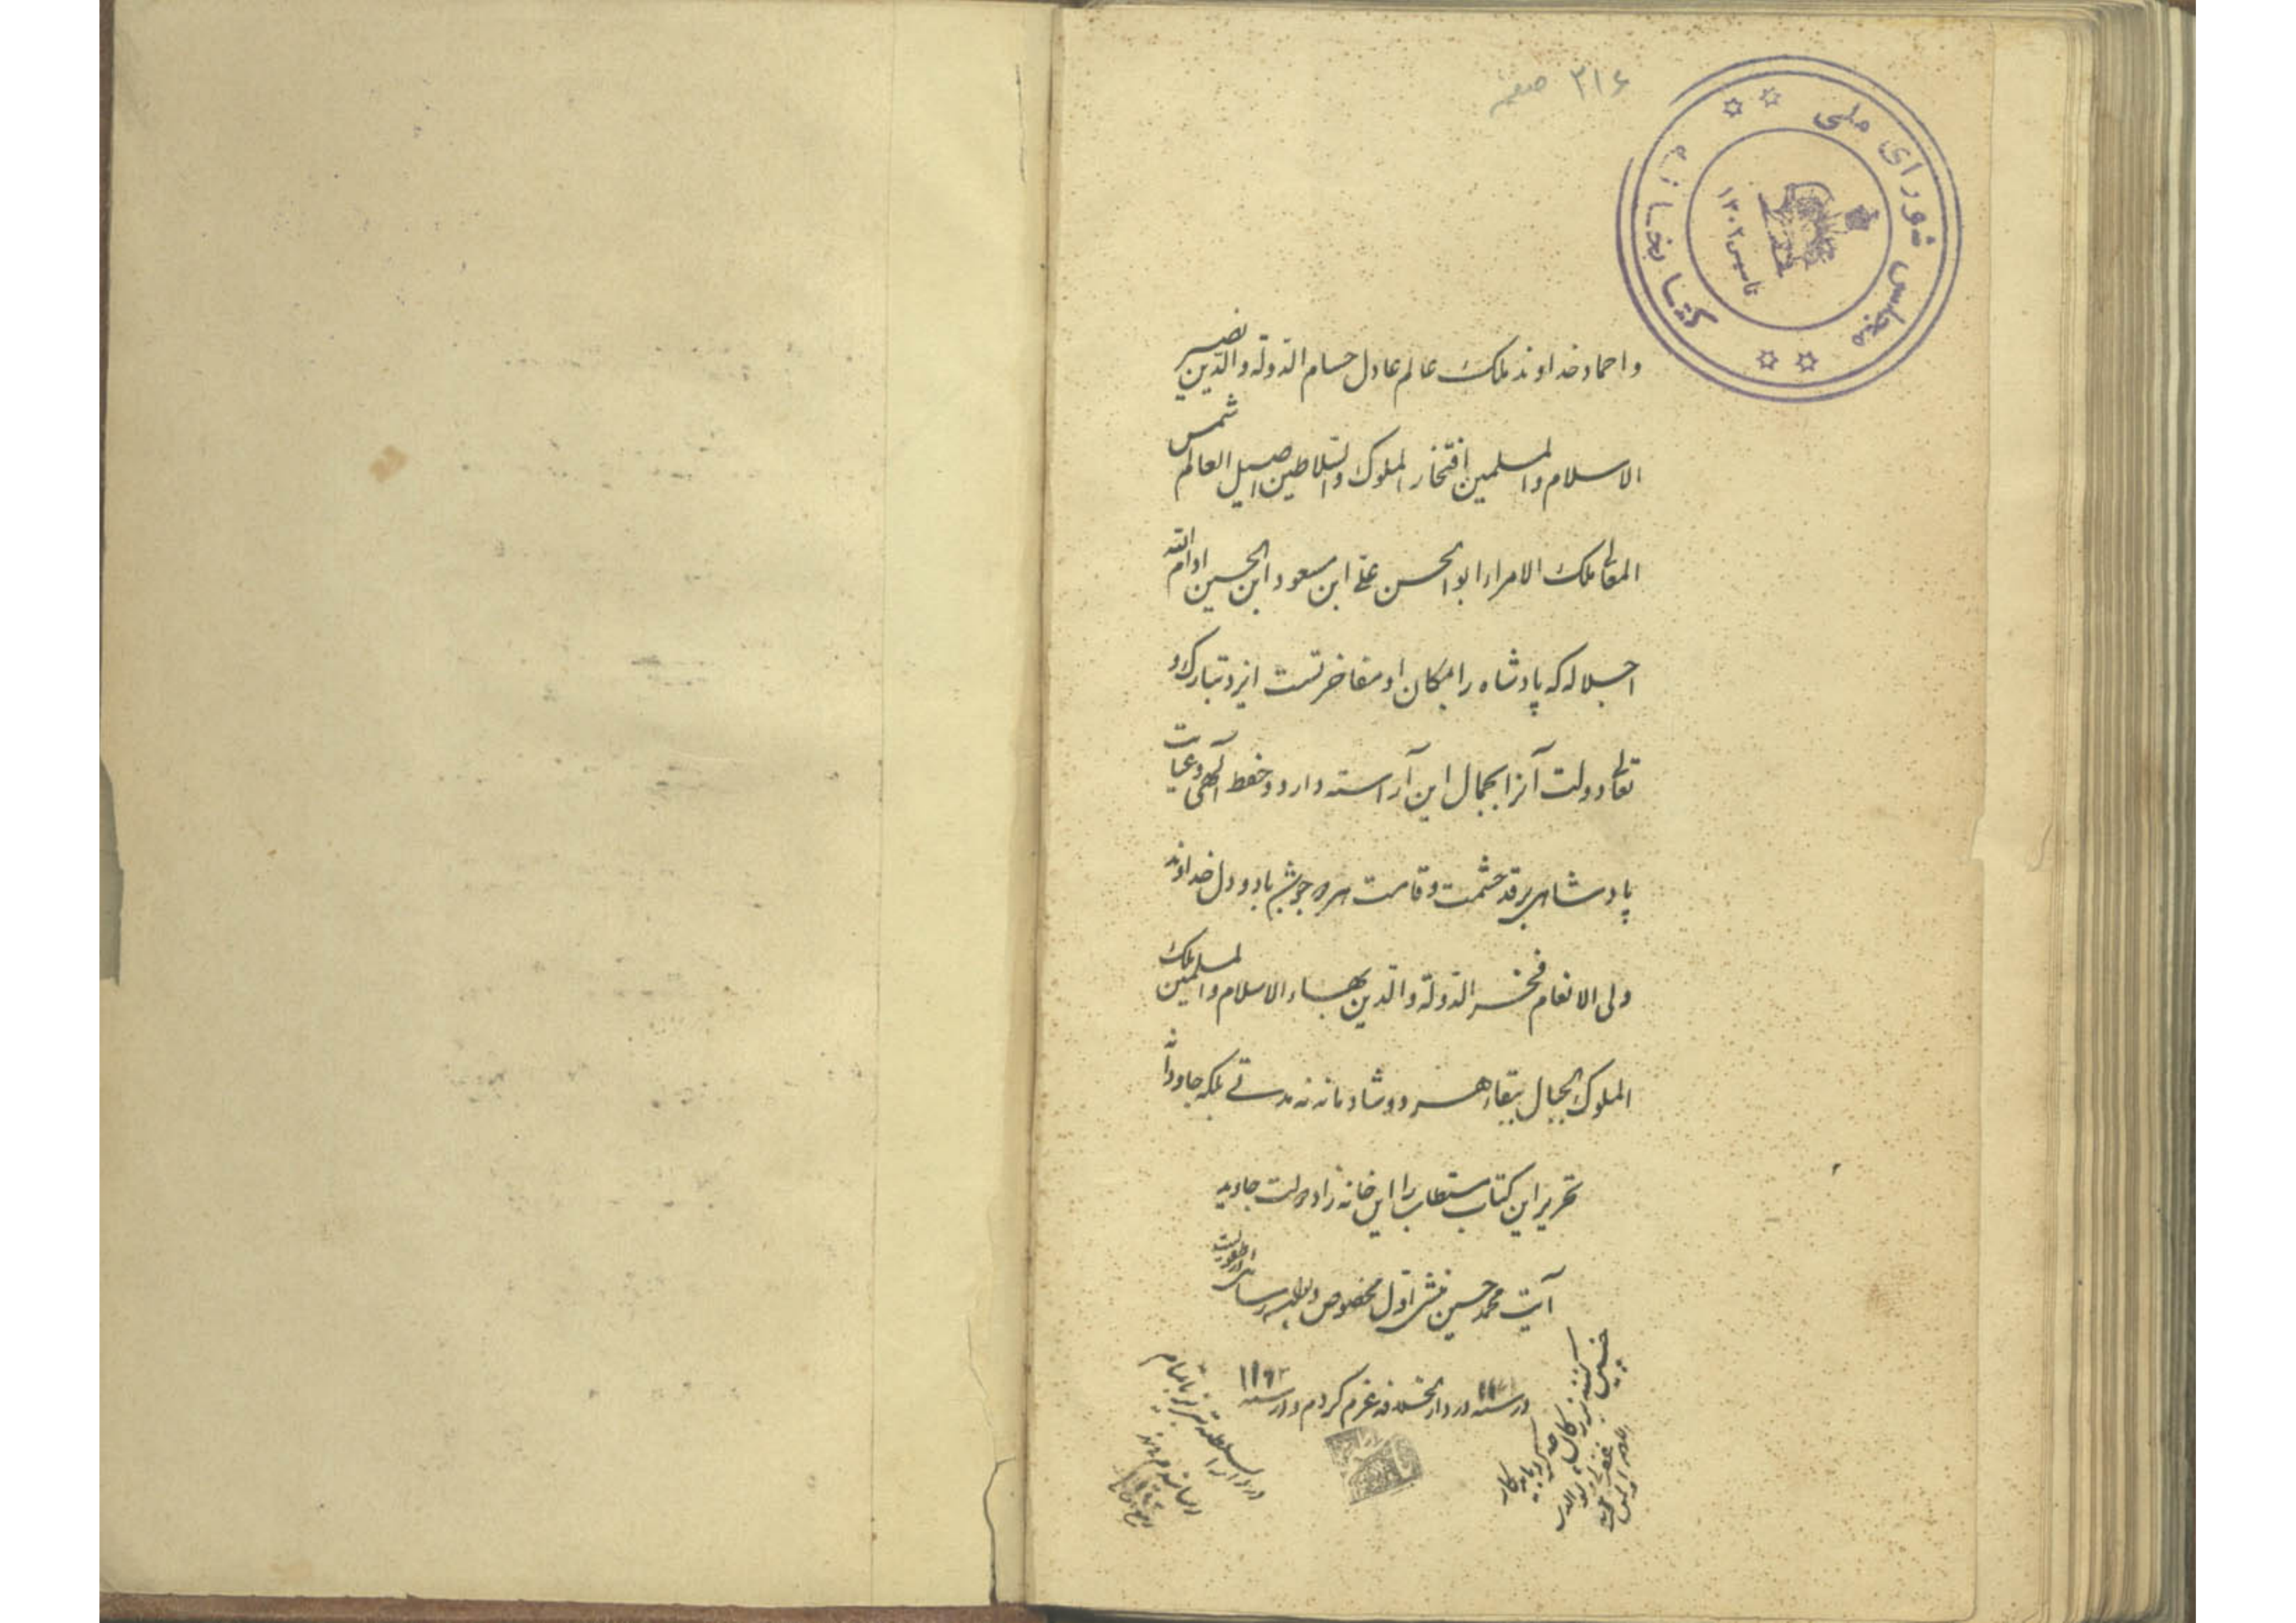 ۳۱۶ صفحه
کتابخانه مجلس شورای ملی
تاسیس ۱۳۰۲
و احماد خداوند ملک عالم عادل حسام الدولة و الدین نصیر
الاسلام و المسلمین افتخار الملوک و السلاطین اصیل العالم شمس
المعالی ملک الامراء ابوالحسن علی ابن مسعود ابن الحسین ادام الله
اجلاله که پادشاه را بمکان او مفاخرتست ایزد تبارک و
تعالی دولت آنرا بجمال این آراسته دارد و حفظ الهی و عنایت
پادشاهی بر قد حشمت و قامت هر دو جوشن باد و دل خداوند
ولی الانعام فخر الدولة و الدین بهاء الاسلام و المسلمین ملک
الملوک الجبال ببقاء هر دو شادمانه نه مدتی بلکه جاودانه
تحریر این کتاب مستطاب را این خانه زاد دولت جاوید
آیت محمد حسین منشی اول مخصوص
در سنه در دارالخلافه عزم کردم و در سنه
در دار السلطنه تبریز باتمام